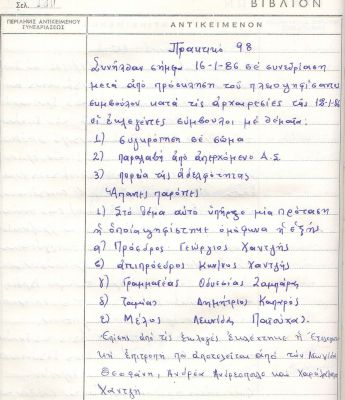 Σελ. 230
ΒΙΒΛΙΟΝ
ΠΕΡΙΛΗΨΙΣ ΑΝΤΙΚΕΙΜΕΝΟΥ
ΣΥΝΕΔΡΙΑΣΕΩΣ
ΑΝΤΙΚΕΙΜΕΝΟΝ
Πρακτικό 98
Συνήλθαν σήμερα 16-1-86 σέ συνεδρίαση
μετά από πρόσκληση τού πλειοψηφίσαντα
συμβούλου κατά τίς αρχαιρεσίες τής 12-1-86
οί εκλεγέντες σύμβουλοι μέ θέματα:
1) συγκρότηση σέ σώμα
2) παραλαβή από απερχόμενο Δ.Σ.
3) πορεία τής αδελφότητας
Άπαντες παρόντες
1) Στό θέμα αυτό υπήρξε μία πρόταση
ή οποία ψηφίστηκε ομόφωνα ή εξής.
α) Πρόεδρος Γεώργιος Χαντζής
β) αντιπρόεδρος Κων/νος Χαντζής
γ) Γραμματέας Οδυσσέας Σαμαράς
δ) Ταμίας Δημήτριος
ε) Μέλος Λεωνίδας
Επίσης από τίς εκλογές εκλέχτηκε ή Εξελεγκτ
κή Επιτροπή πού αποτελείται από τών Λεωνίδα
Θεοφάνη, Ανδρέα Ανδρεόπουλο καί Χαράλαμπο
Χαντζή